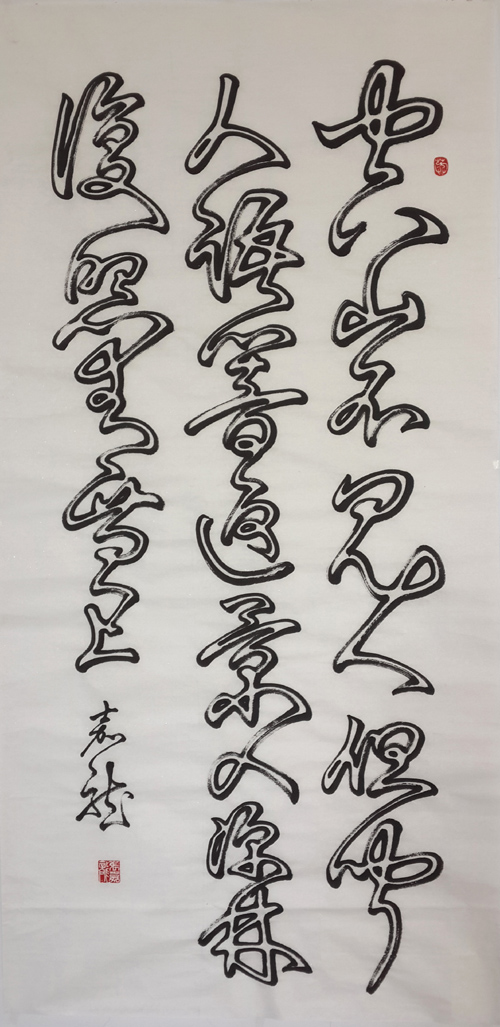 空山不见人但闻
人语响返景入深林
复照青苔上
嘉龙